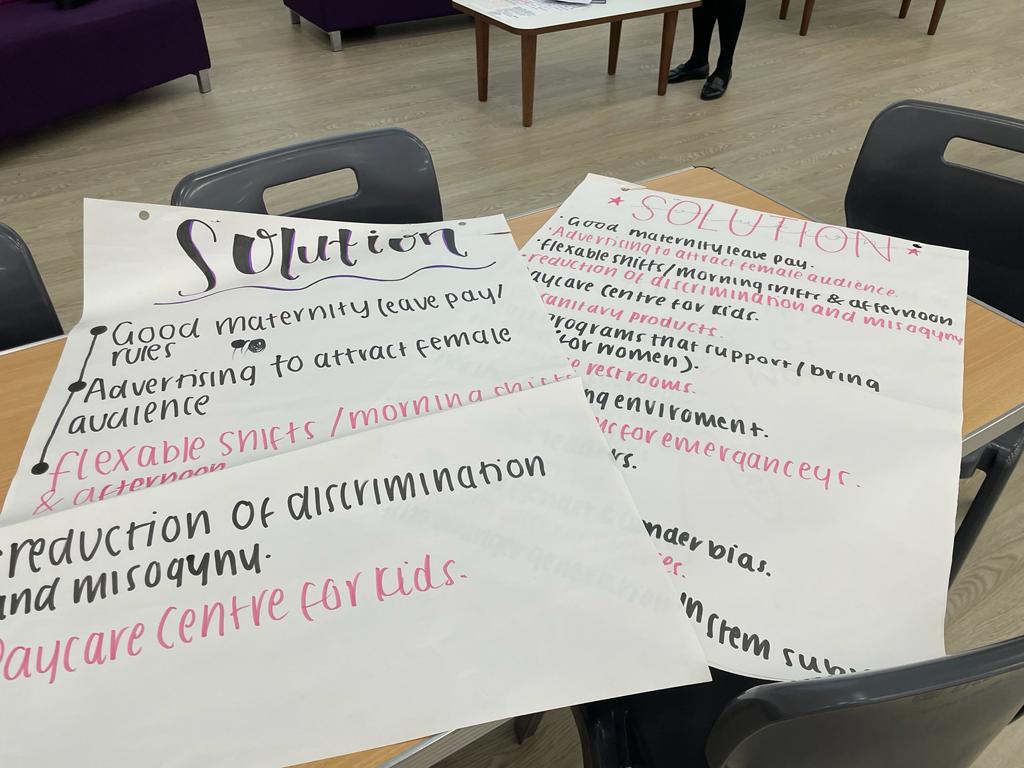 Solution
Good maternity leave pay/
rules
Advertising to attract female
audience
flexable shifts / morning shifts
& afternoon
reduction of discrimination
and misogyny.
Daycare Centre for kids.
SOLUTION
· Good maternity leave pay.
· Advertising to attract female audience.
· flexable shifts / morning shifts & afternoon
· reduction of discrimination and misogyny
aycare Centre for kids.
sanitary products.
programs that support / bring
(for women).
restrooms.
enviroment.
for emerganceys.
bias.
in stem